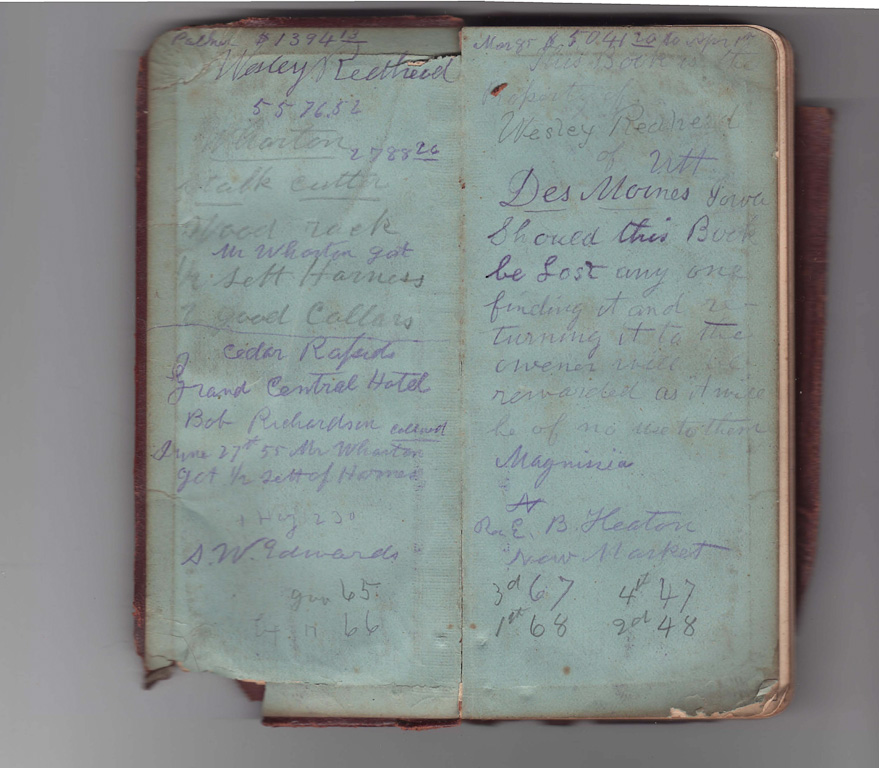 Palmer $1394 13
Wesley Redhead
5576.52
Wharton 2788 26
Stalk cutter
Wood rack
Mr Wharton got
1/2 Sett Harness
2 good Collars
Cedar Rapids
Grand Central Hotel
Bob Richardson collored
June 27th 55 Mr Wharton
got 1/2 Sett of Harness
230
S. W. Edwards
65
66
$5041 20 to Apr 1st
This Book is the
Property of
Wesley Redhead
of
Des Moines Iowa
Should this Book
be Lost any one
finding it and re-
turning it to the
owener will be
rewarded as it will
be of no use to them
Magnissia
E. B. Heaton
New Market
3d 67 4th 47
1st 68 2nd 48